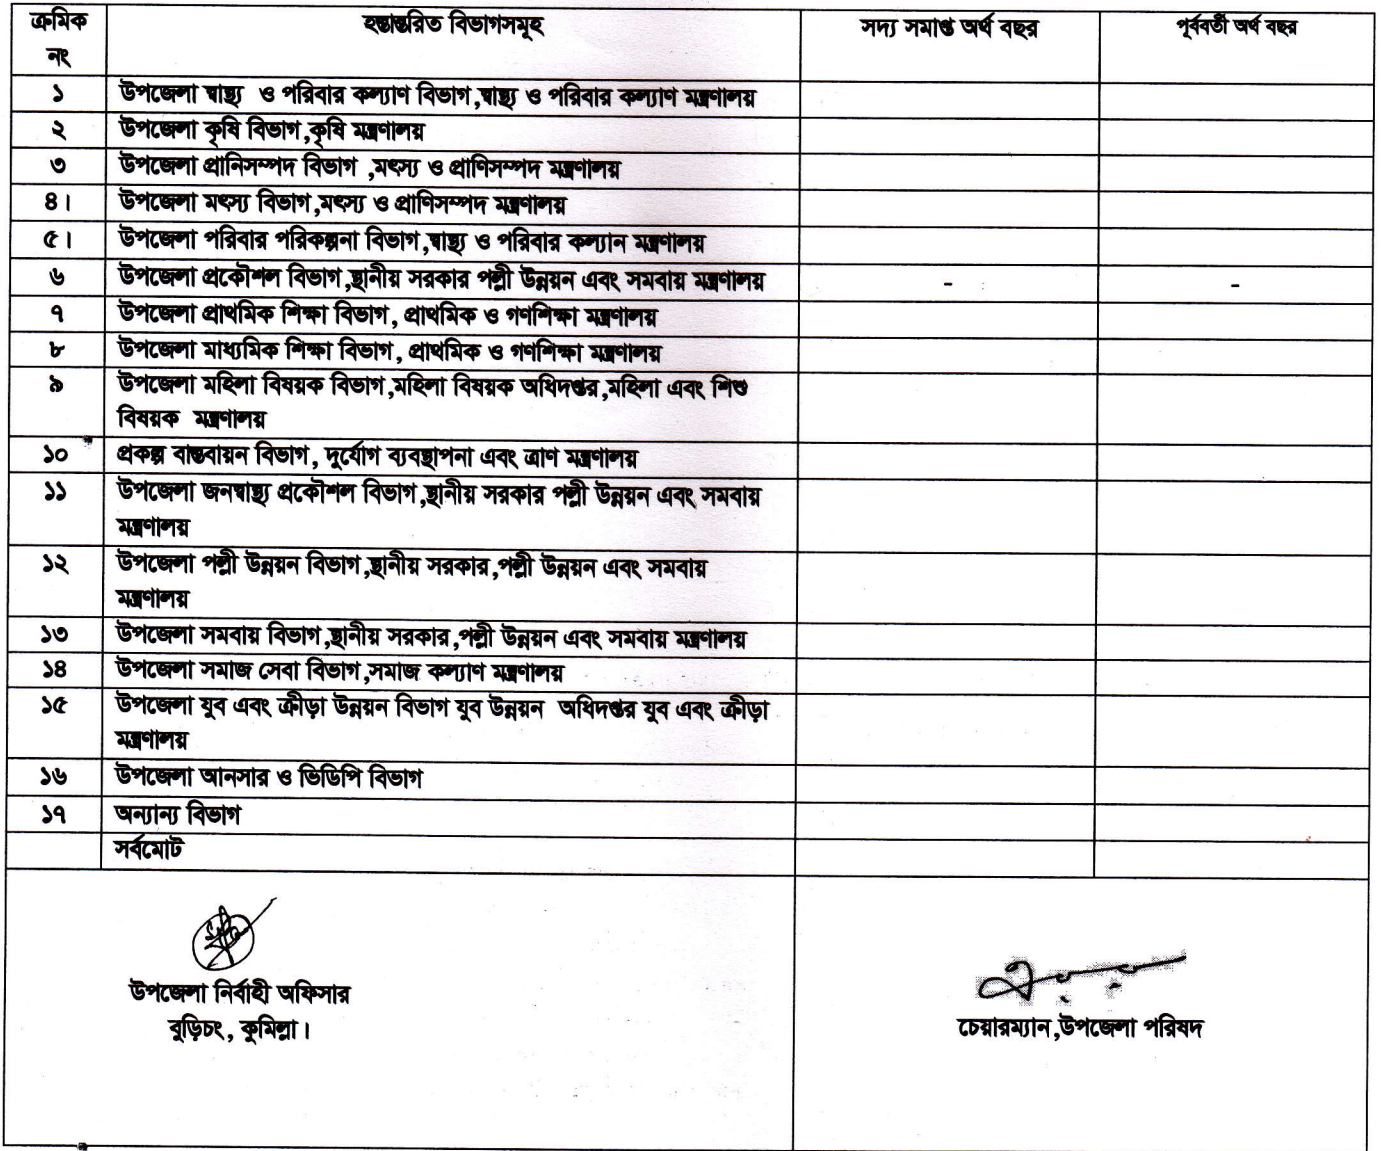 ক্রমিক নং হস্তান্তরিত বিভাগসমূহ সদ্য সমাপ্ত অর্থ বছর পূর্ববর্তী অর্থ বছর
১ উপজেলা স্বাস্থ্য ও পরিবার কল্যাণ বিভাগ,স্বাস্থ্য ও পরিবার কল্যাণ মন্ত্রণালয়
২ উপজেলা কৃষি বিভাগ,কৃষি মন্ত্রণালয়
৩ উপজেলা প্রানিসম্পদ বিভাগ ,মৎস্য ও প্রাণিসম্পদ মন্ত্রণালয়
৪। উপজেলা মৎস্য বিভাগ,মৎস্য ও প্রাণিসম্পদ মন্ত্রণালয়
৫। উপজেলা পরিবার পরিকল্পনা বিভাগ,স্বাস্থ্য ও পরিবার কল্যান মন্ত্রণালয়
৬ উপজেলা প্রকৌশল বিভাগ,স্থানীয় সরকার পল্লী উন্নয়ন এবং সমবায় মন্ত্রণালয় - -
৭ উপজেলা প্রাথমিক শিক্ষা বিভাগ, প্রাথমিক ও গণশিক্ষা মন্ত্রণালয়
৮ উপজেলা মাধ্যমিক শিক্ষা বিভাগ, প্রাথমিক ও গণশিক্ষা মন্ত্রণালয়
৯ উপজেলা মহিলা বিষয়ক বিভাগ,মহিলা বিষয়ক অধিদপ্তর,মহিলা এবং শিশু
বিষয়ক মন্ত্রণালয়
১০ প্রকল্প বাস্তবায়ন বিভাগ, দুর্যোগ ব্যবস্থাপনা এবং ত্রাণ মন্ত্রণালয়
১১ উপজেলা জনস্বাস্থ্য প্রকৌশল বিভাগ,স্থানীয় সরকার পল্লী উন্নয়ন এবং সমবায়
মন্ত্রণালয়
১২ উপজেলা পল্লী উন্নয়ন বিভাগ,স্থানীয় সরকার,পল্লী উন্নয়ন এবং সমবায়
মন্ত্রণালয়
১৩ উপজেলা সমবায় বিভাগ,স্থানীয় সরকার,পল্লী উন্নয়ন এবং সমবায় মন্ত্রণালয়
১৪ উপজেলা সমাজ সেবা বিভাগ,সমাজ কল্যাণ মন্ত্রণালয়
১৫ উপজেলা যুব এবং ক্রীড়া উন্নয়ন বিভাগ যুব উন্নয়ন অধিদপ্তর যুব এবং ক্রীড়া
মন্ত্রণালয়
১৬ উপজেলা আনসার ও ভিডিপি বিভাগ
১৭ অন্যান্য বিভাগ
সর্বমোট
উপজেলা নির্বাহী অফিসার
বুড়িচং, কুমিল্লা।
চেয়ারম্যান,উপজেলা পরিষদ